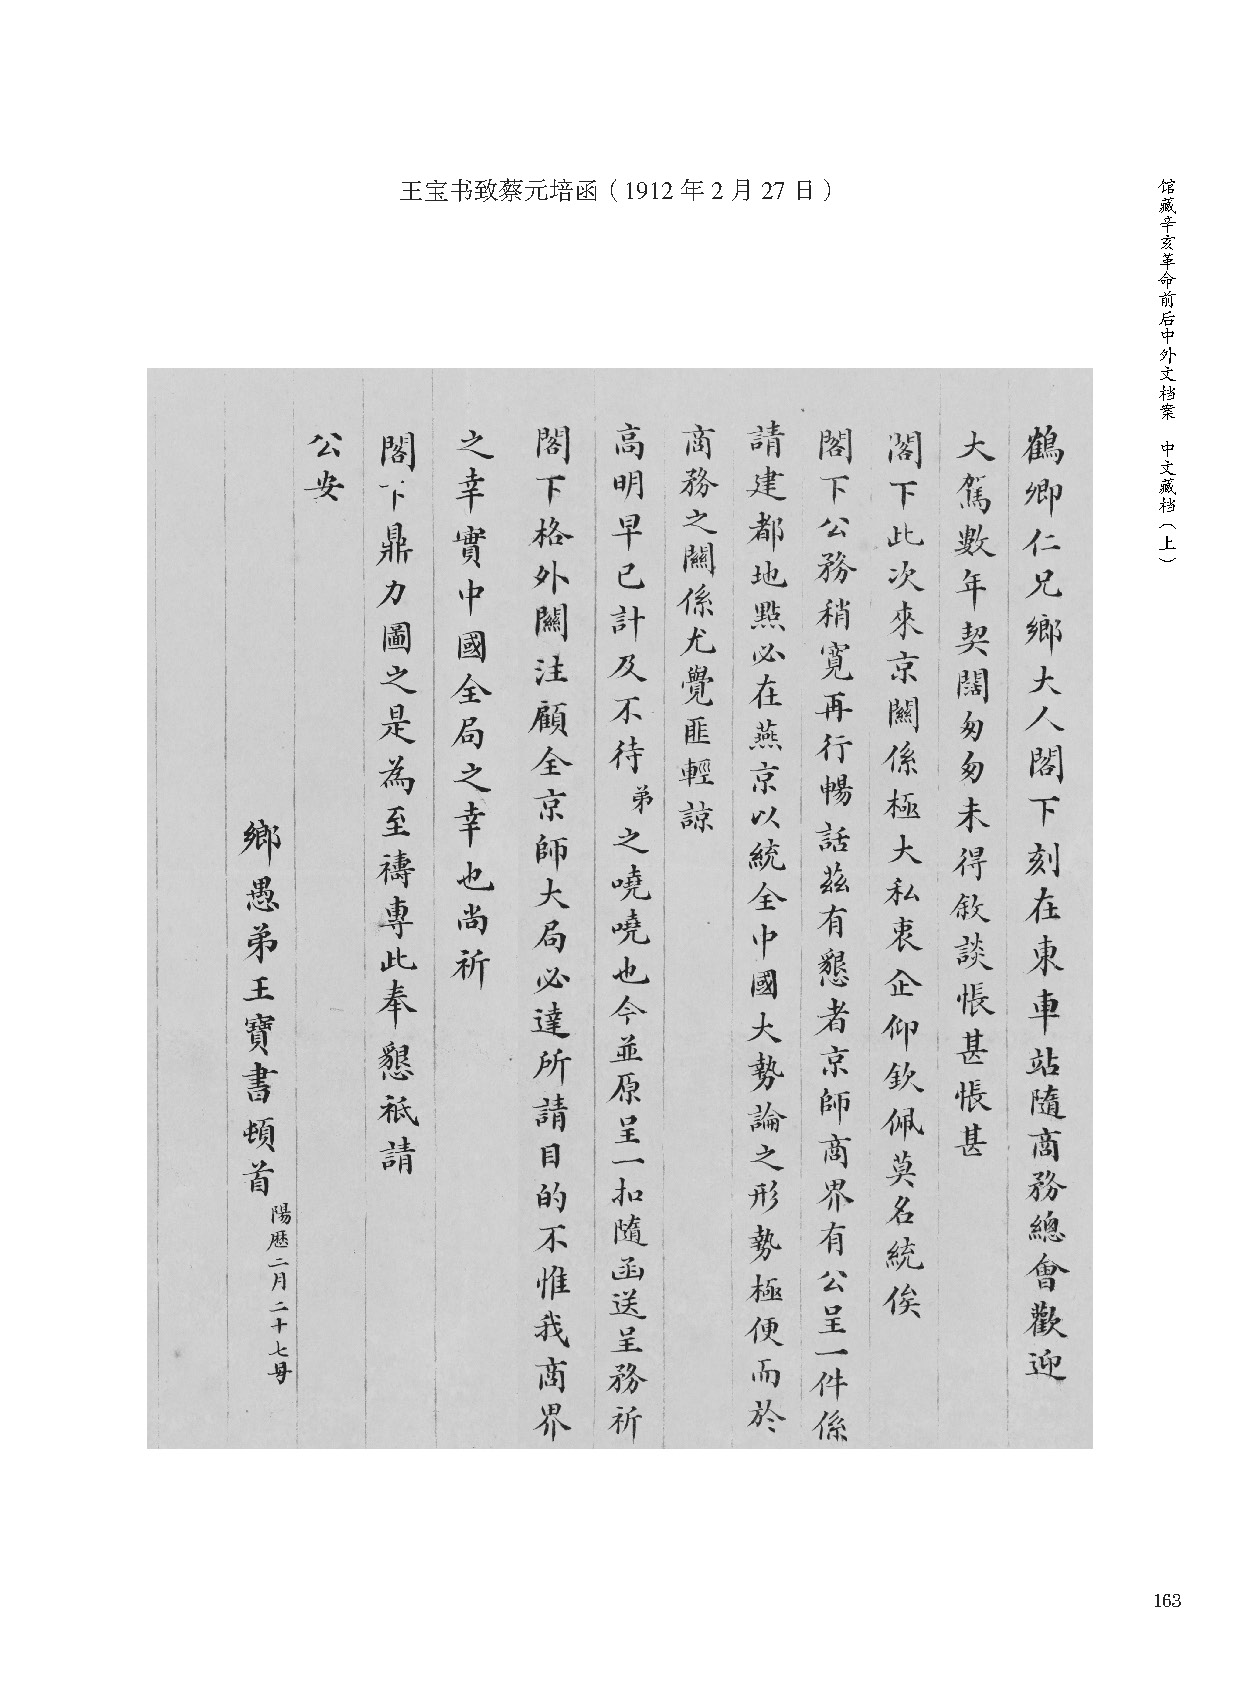 王宝书致蔡元培函（1912 年 2 月 27 日）
馆藏辛亥革命前后中外文档案 中文藏档（上）
鶴卿仁兄鄉大人閣下刻在東車站隨商務總會歡迎
大駕數年契闊匆匆未得敘談悵甚悵甚
閣下此次來京關係極大私衷企仰欽佩莫名統俟
閣下公務稍寬再行暢話茲有懇者京師商界有公呈一件係
請建都地點必在燕京以統全中國大勢論之形勢極便而於
商務之關係尤覺匪輕諒
高明早已計及不待弟之嘵嘵也今並原呈一扣隨函送呈務祈
閣下格外關注顧全京師大局必達所請目的不惟我商界
之幸實中國全局之幸也尚祈
閣下鼎力圖之是為至禱專此奉懇祗請
公安
鄉愚弟王寶書頓首 陽歷二月二十七号
163